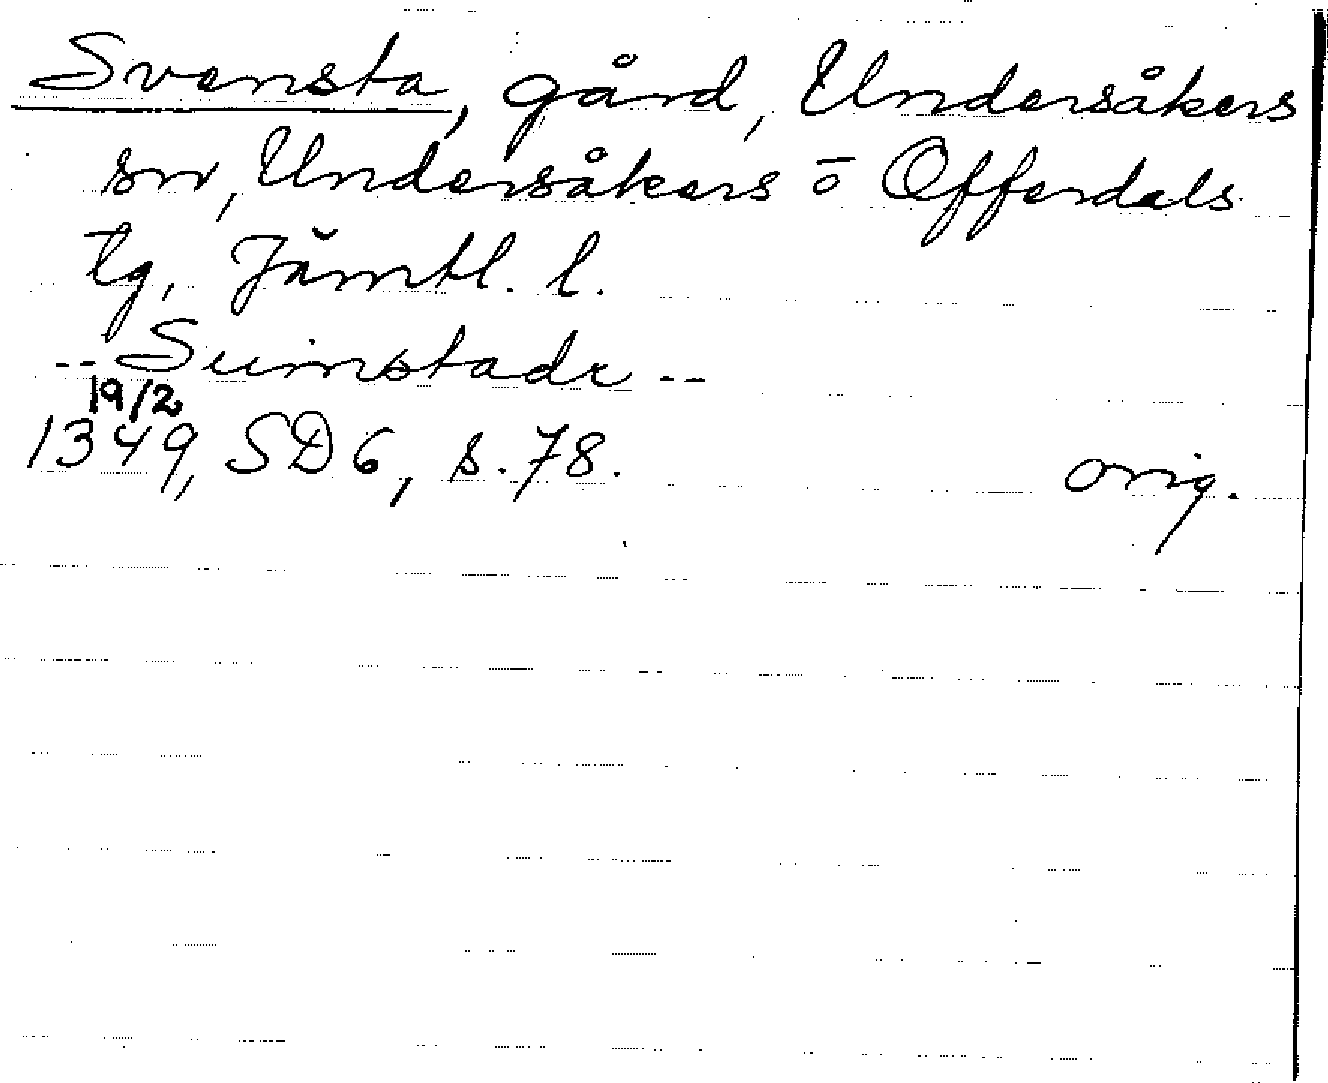 Svensta, gård, Undersåkers
sn, Undersåkers o Offerdals
tg, Jämtl. l.
-- Suinstadr --
19/2
1349, SD 6, s. 78. orig.